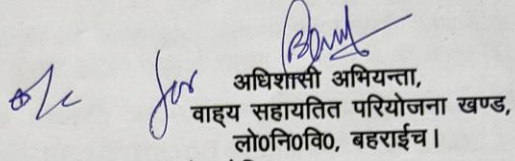 for अधिशासी अभियन्ता,
वाह्य सहायतित परियोजना खण्ड,
लो0नि0वि0, बहराईच।